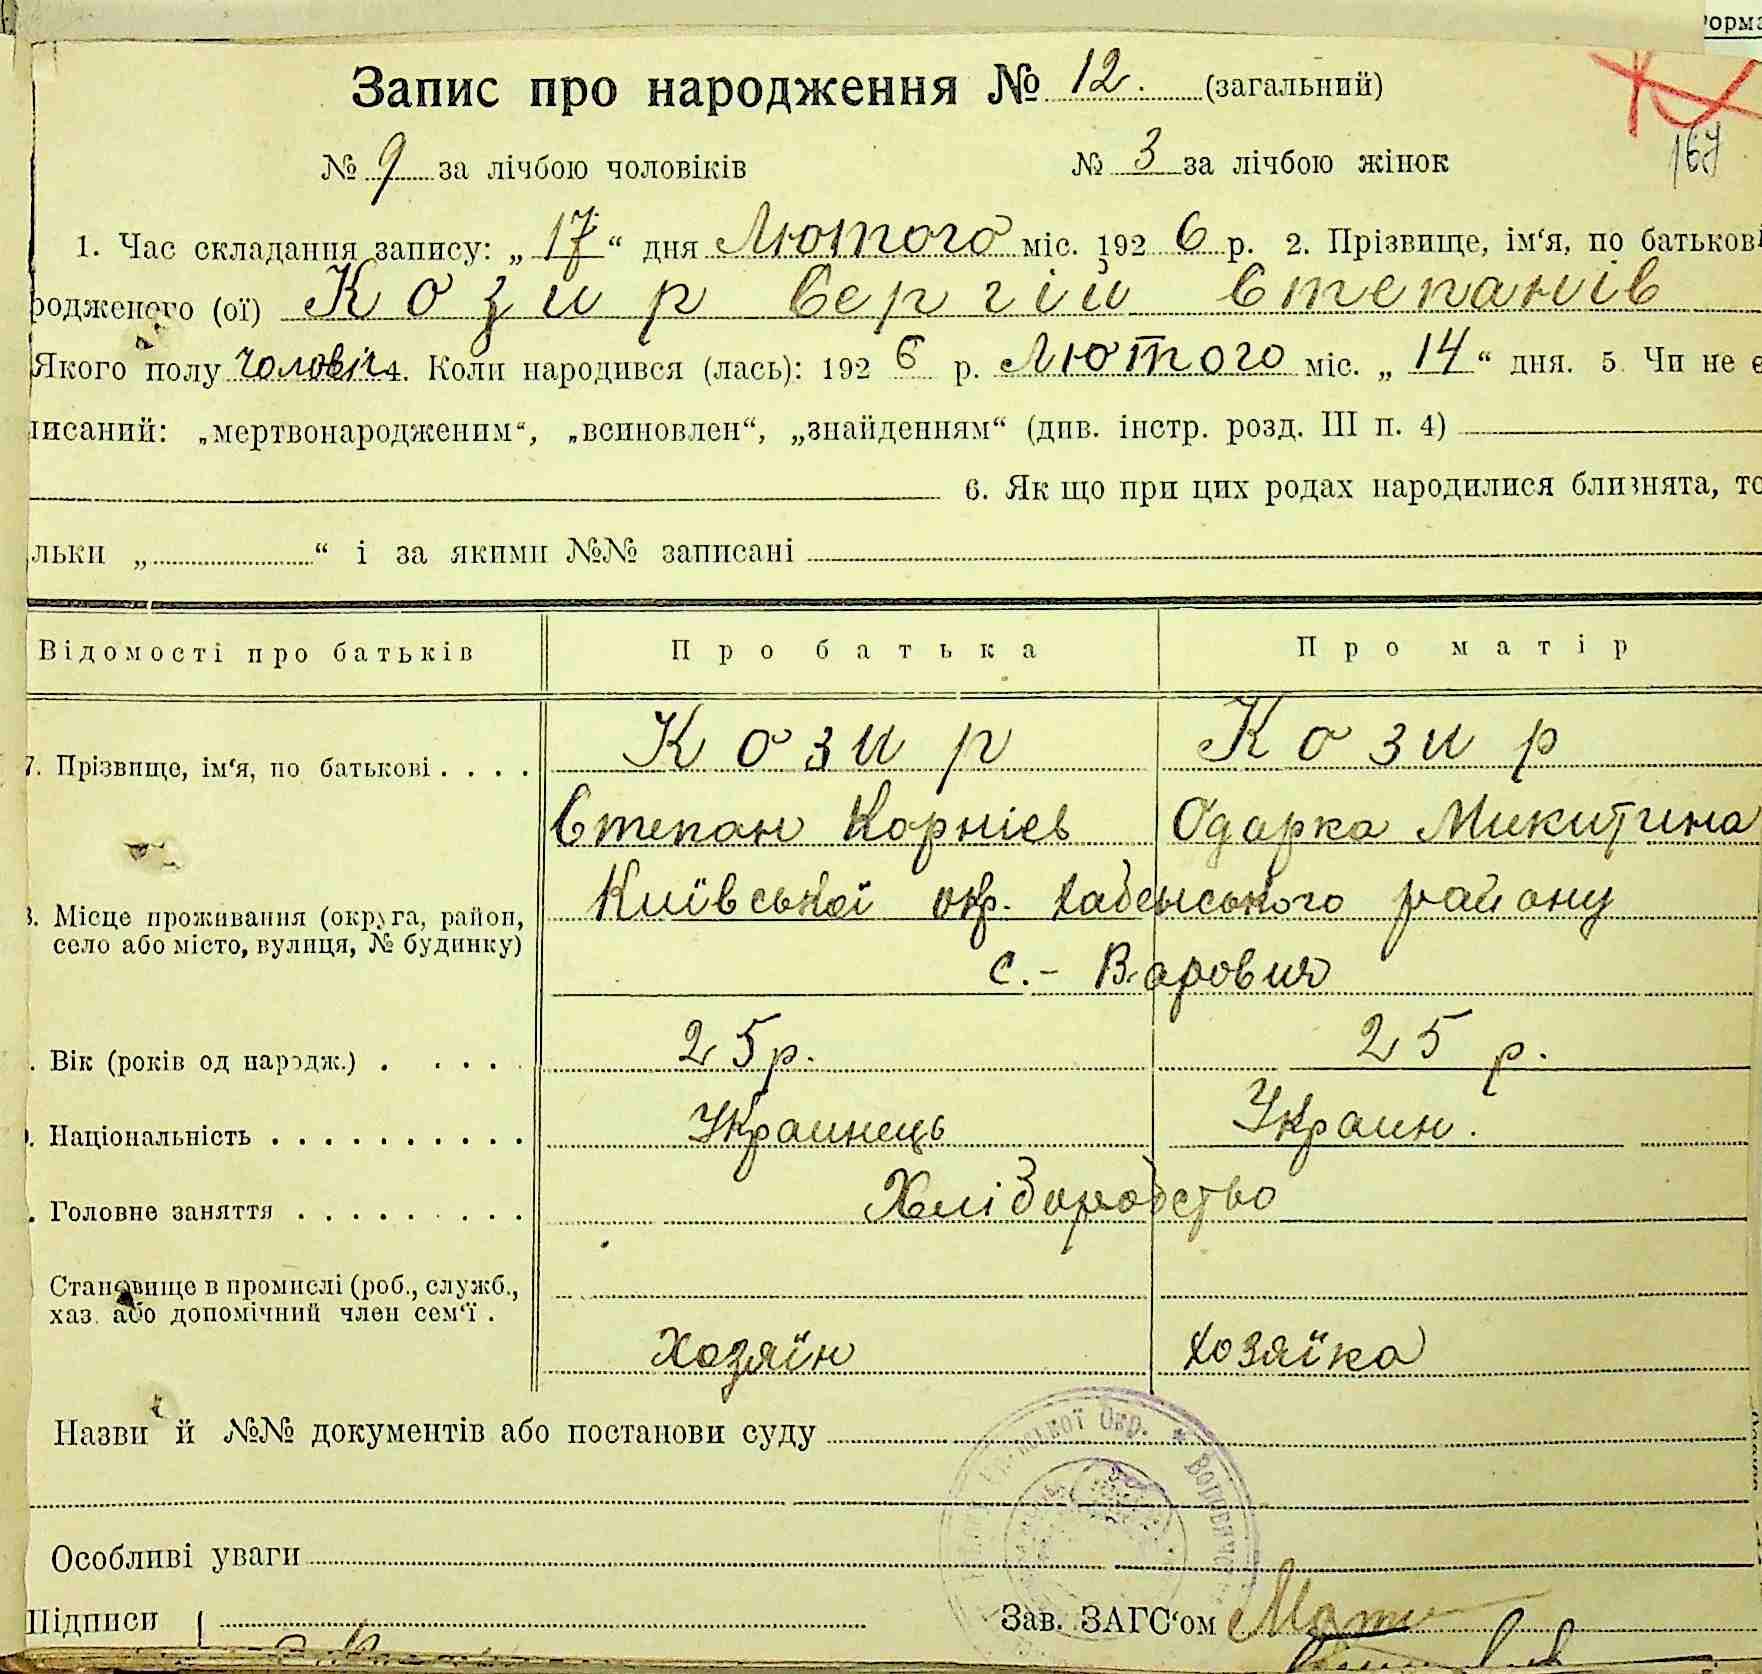 орма
Запис про народження № 12. (загальний)
167
№ 9 за лічбою чоловіків № 3 за лічбою жінок
1. Час складання запису: „17“ дня Лютого міс. 1926 р. 2. Прізвище, ім‘я, по батькові
родженого (ої) Козир Сергій Степанів
Якого полу чоловіч 4. Коли народився (лась): 1926 р. Лютого міс. „14“ дня. 5. Чи не є
писаний: „мертвонародженим“, „всиновлен“, „знайденням“ (див. інстр. розд. III п. 4)
6. Як що при цих родах народилися близнята, то
льки „ “ і за якими №№ записані
Відомості про батьків Про батька Про матір
7. Прізвище, ім‘я, по батькові . . . . Козир Козир
Степан Корніев Одарка Микитина
8. Місце проживання (округа, район, село або місто, вулиця, № будинку) Київської окр. Хабенського району
с.- Варовичі
. Вік (років од народж.) . . . . . 25 р. 25 р.
. Національність . . . . . . . . . . Украинець Украин.
. Головне заняття . . . . . . . . . Хліборобство
Становище в промислі (роб., служб.,
хаз. або допомічний член сем‘ї . Хозяїн хозяїка
Назви й №№ документів або постанови суду
Особливі уваги
Підписи { Зав. ЗАГС‘ом